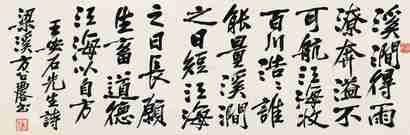 溪澗得雨
潦奔溢不
可航江海收
百川浩〻誰
能量溪澗
之日短江海
之日長願
生畜道德
江海以自方
王安石先生詩
梁溪方召麐書